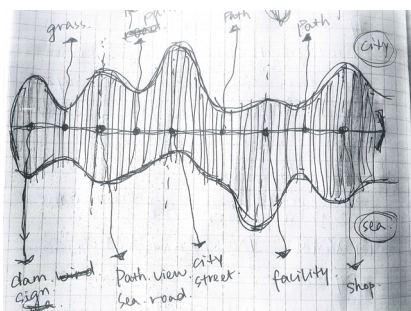 grass.
Path
Path
city
sea
dam.
sign.
Path. view.
sea. road.
city
street.
facility.
shop.